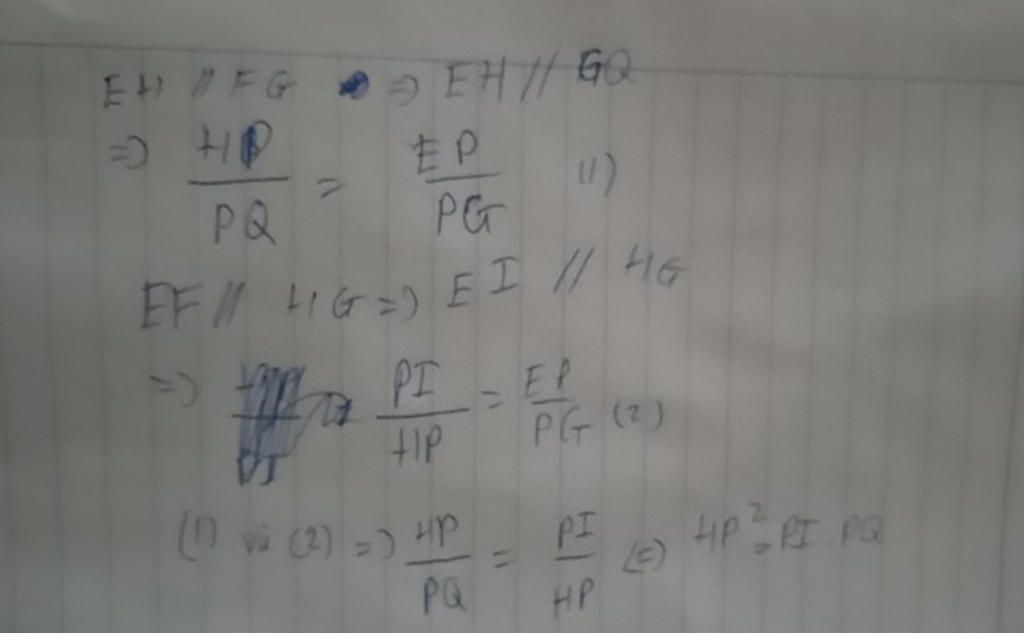 EH // FG => EH // GQ
=> HP/PQ = EP/PG (1)
EF // HG => EI // HG
=> PI/HP = EP/PG (2)
(1) và (2) => HP/PQ = PI/HP (=) HP² = PI . PQ